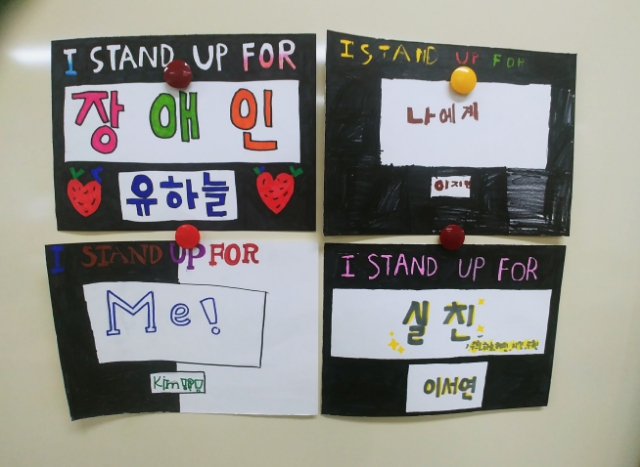 I STAND UP FOR
장애인
유하늘
I STAND UP FOR
나에게
I STAND UP FOR
Me!
Kim
I STAND UP FOR
실친
이서연